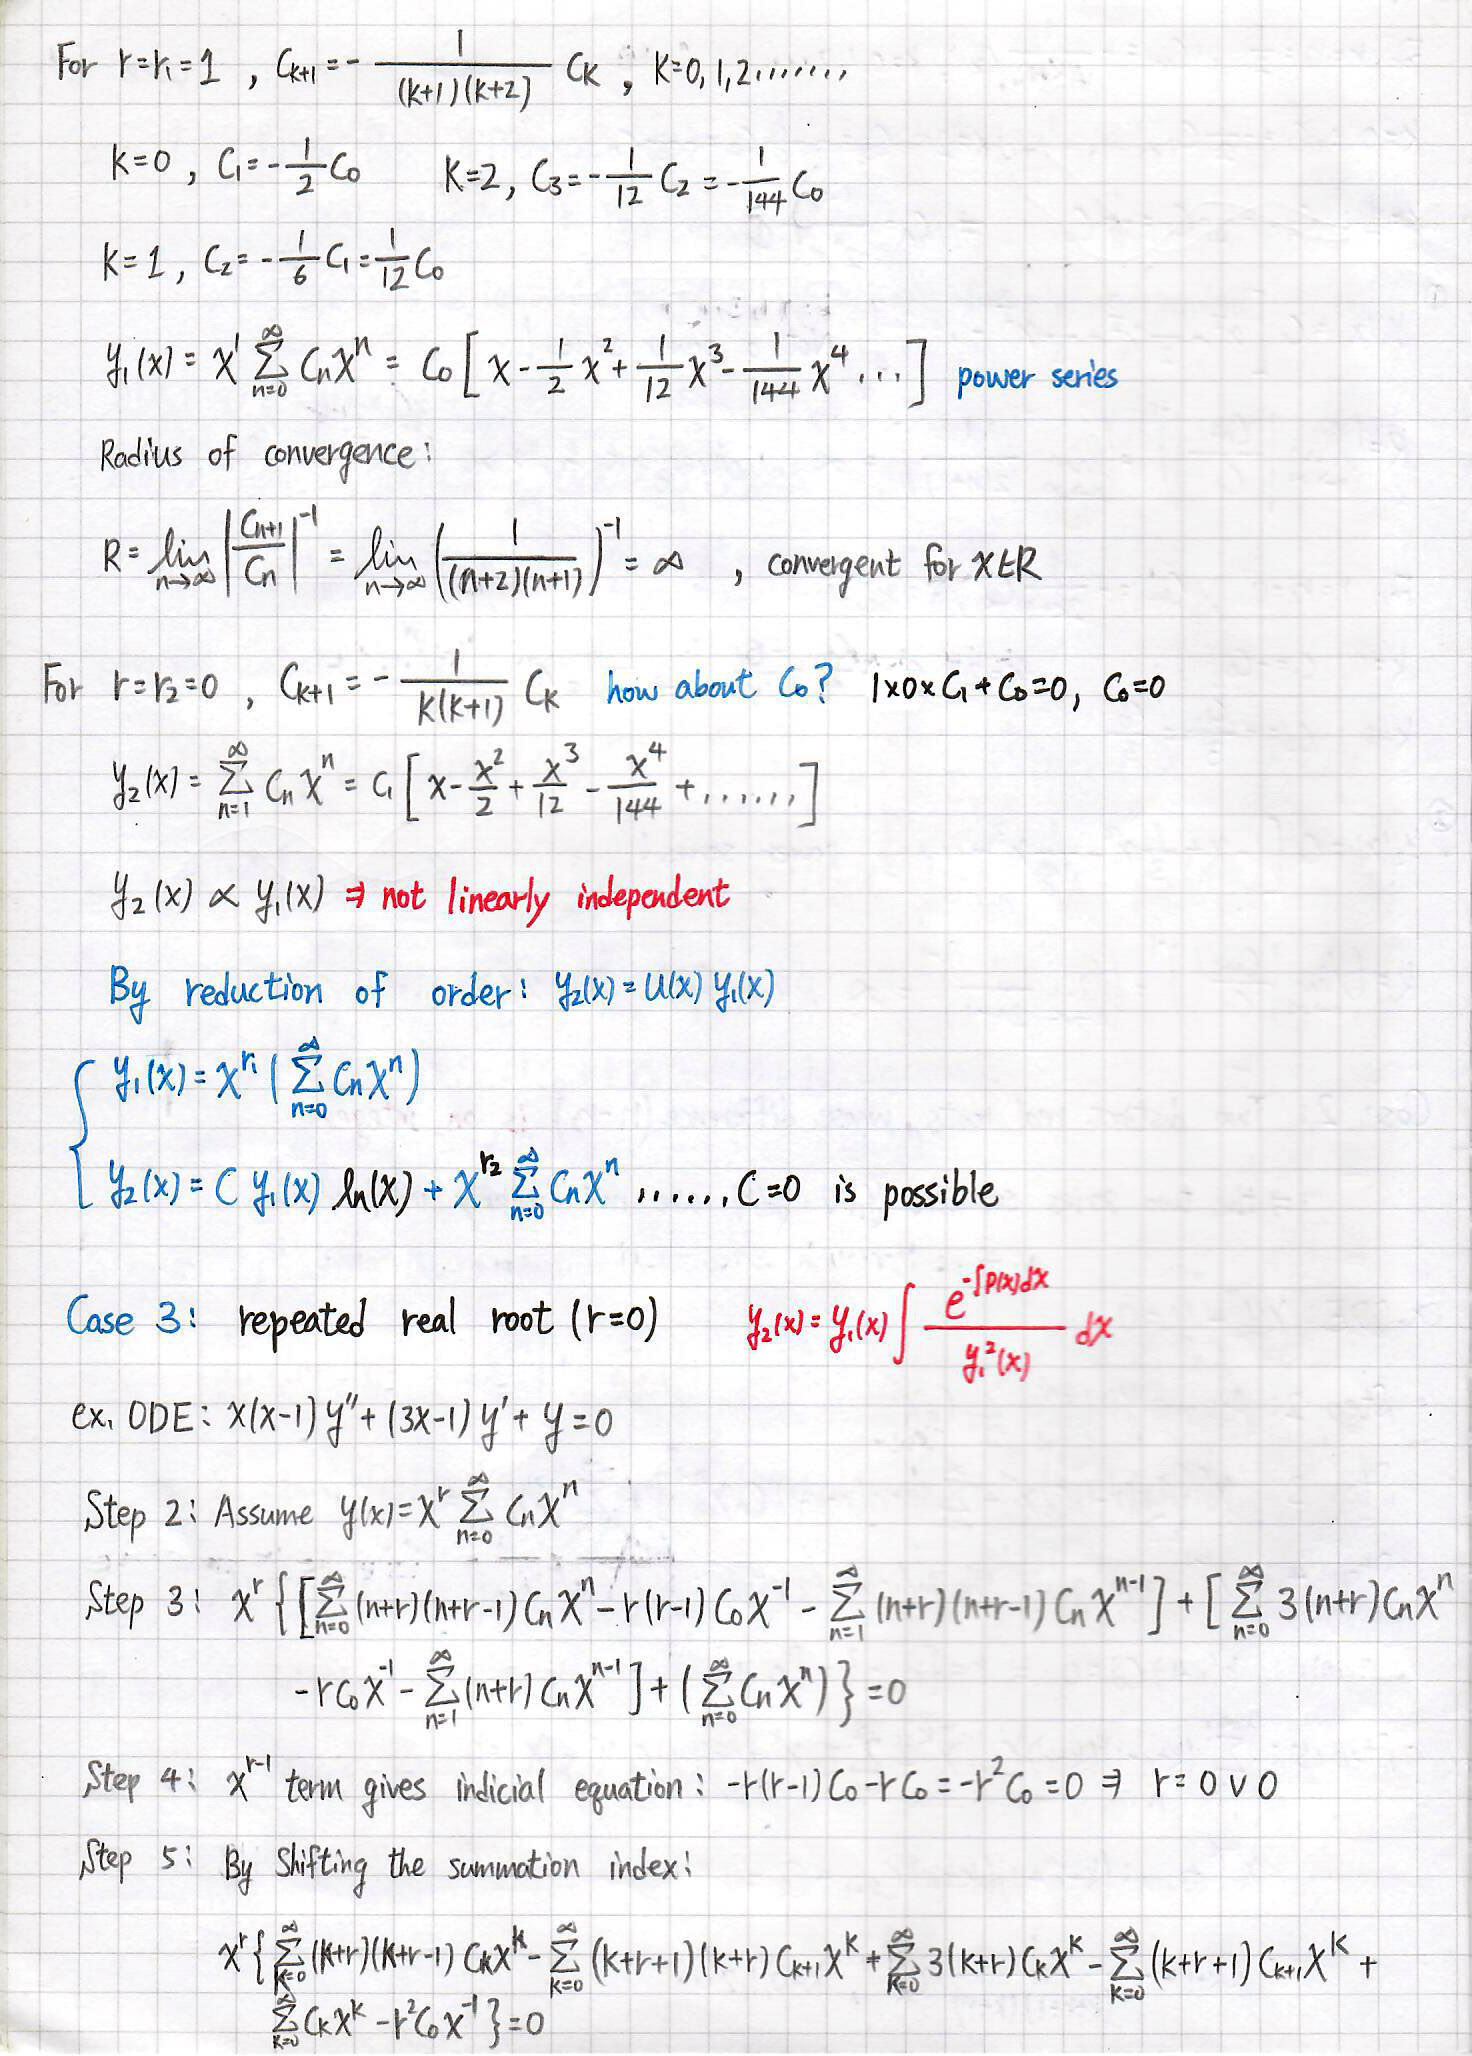 For r=r₁=1 , C_{k+1} = - 1/((k+1)(k+2)) C_k , k=0,1,2.......
k=0 , C₁ = - 1/2 C₀ k=2 , C₃ = - 1/12 C₂ = - 1/144 C₀
k=1 , C₂ = - 1/6 C₁ = 1/12 C₀
y₁(x) = x¹ Σ_{n=0}^{∞} C_n x^n = C₀ [ x - 1/2 x² + 1/12 x³ - 1/144 x⁴ ... ] power series
Radius of convergence:
R = lim_{n→∞} |C_{n+1}/C_n|^{-1} = lim_{n→∞} (1/((n+2)(n+1)))^{-1} = ∞ , convergent for x∈R
For r=r₂=0 , C_{k+1} = - 1/(k(k+1)) C_k how about C₀? 1×0×C₁+C₀=0, C₀=0
y₂(x) = Σ_{n=1}^{∞} C_n x^n = C₁ [ x - x²/2 + x³/12 - x⁴/144 + ...... ]
y₂(x) ∝ y₁(x) ⇒ not linearly independent
By reduction of order: y₂(x) = u(x) y₁(x)
{ y₁(x) = x^{r₁} ( Σ_{n=0}^{∞} C_n x^n )
y₂(x) = C y₁(x) ln(x) + x^{r₂} Σ_{n=0}^{∞} C_n x^n ......, C=0 is possible
Case 3: repeated real root (r=0) y₂(x) = y₁(x) ∫ e^{-∫P(x)dx} / y₁²(x) dx
ex. ODE: x(x-1)y''+(3x-1)y'+y=0
Step 2: Assume y(x) = x^r Σ_{n=0}^{∞} C_n x^n
Step 3: x^r { [ Σ_{n=0}^{∞} (n+r)(n+r-1) C_n x^n - r(r-1) C₀ x^{-1} - Σ_{n=1}^{∞} (n+r)(n+r-1) C_n x^{n-1} ] + [ Σ_{n=0}^{∞} 3(n+r) C_n x^n
- r C₀ x^{-1} - Σ_{n=1}^{∞} (n+r) C_n x^{n-1} ] + ( Σ_{n=0}^{∞} C_n x^n ) } = 0
Step 4: x^{r-1} term gives indicial equation: -r(r-1)C₀ - rC₀ = -r²C₀ = 0 ⇒ r = 0 ∨ 0
Step 5: By Shifting the summation index:
x^r { Σ_{k=0}^{∞} (k+r)(k+r-1) C_k x^k - Σ_{k=0}^{∞} (k+r+1)(k+r) C_{k+1} x^k + Σ_{k=0}^{∞} 3(k+r) C_k x^k - Σ_{k=0}^{∞} (k+r+1) C_{k+1} x^k +
Σ_{k=0}^{∞} C_k x^k - r² C₀ x^{-1} } = 0